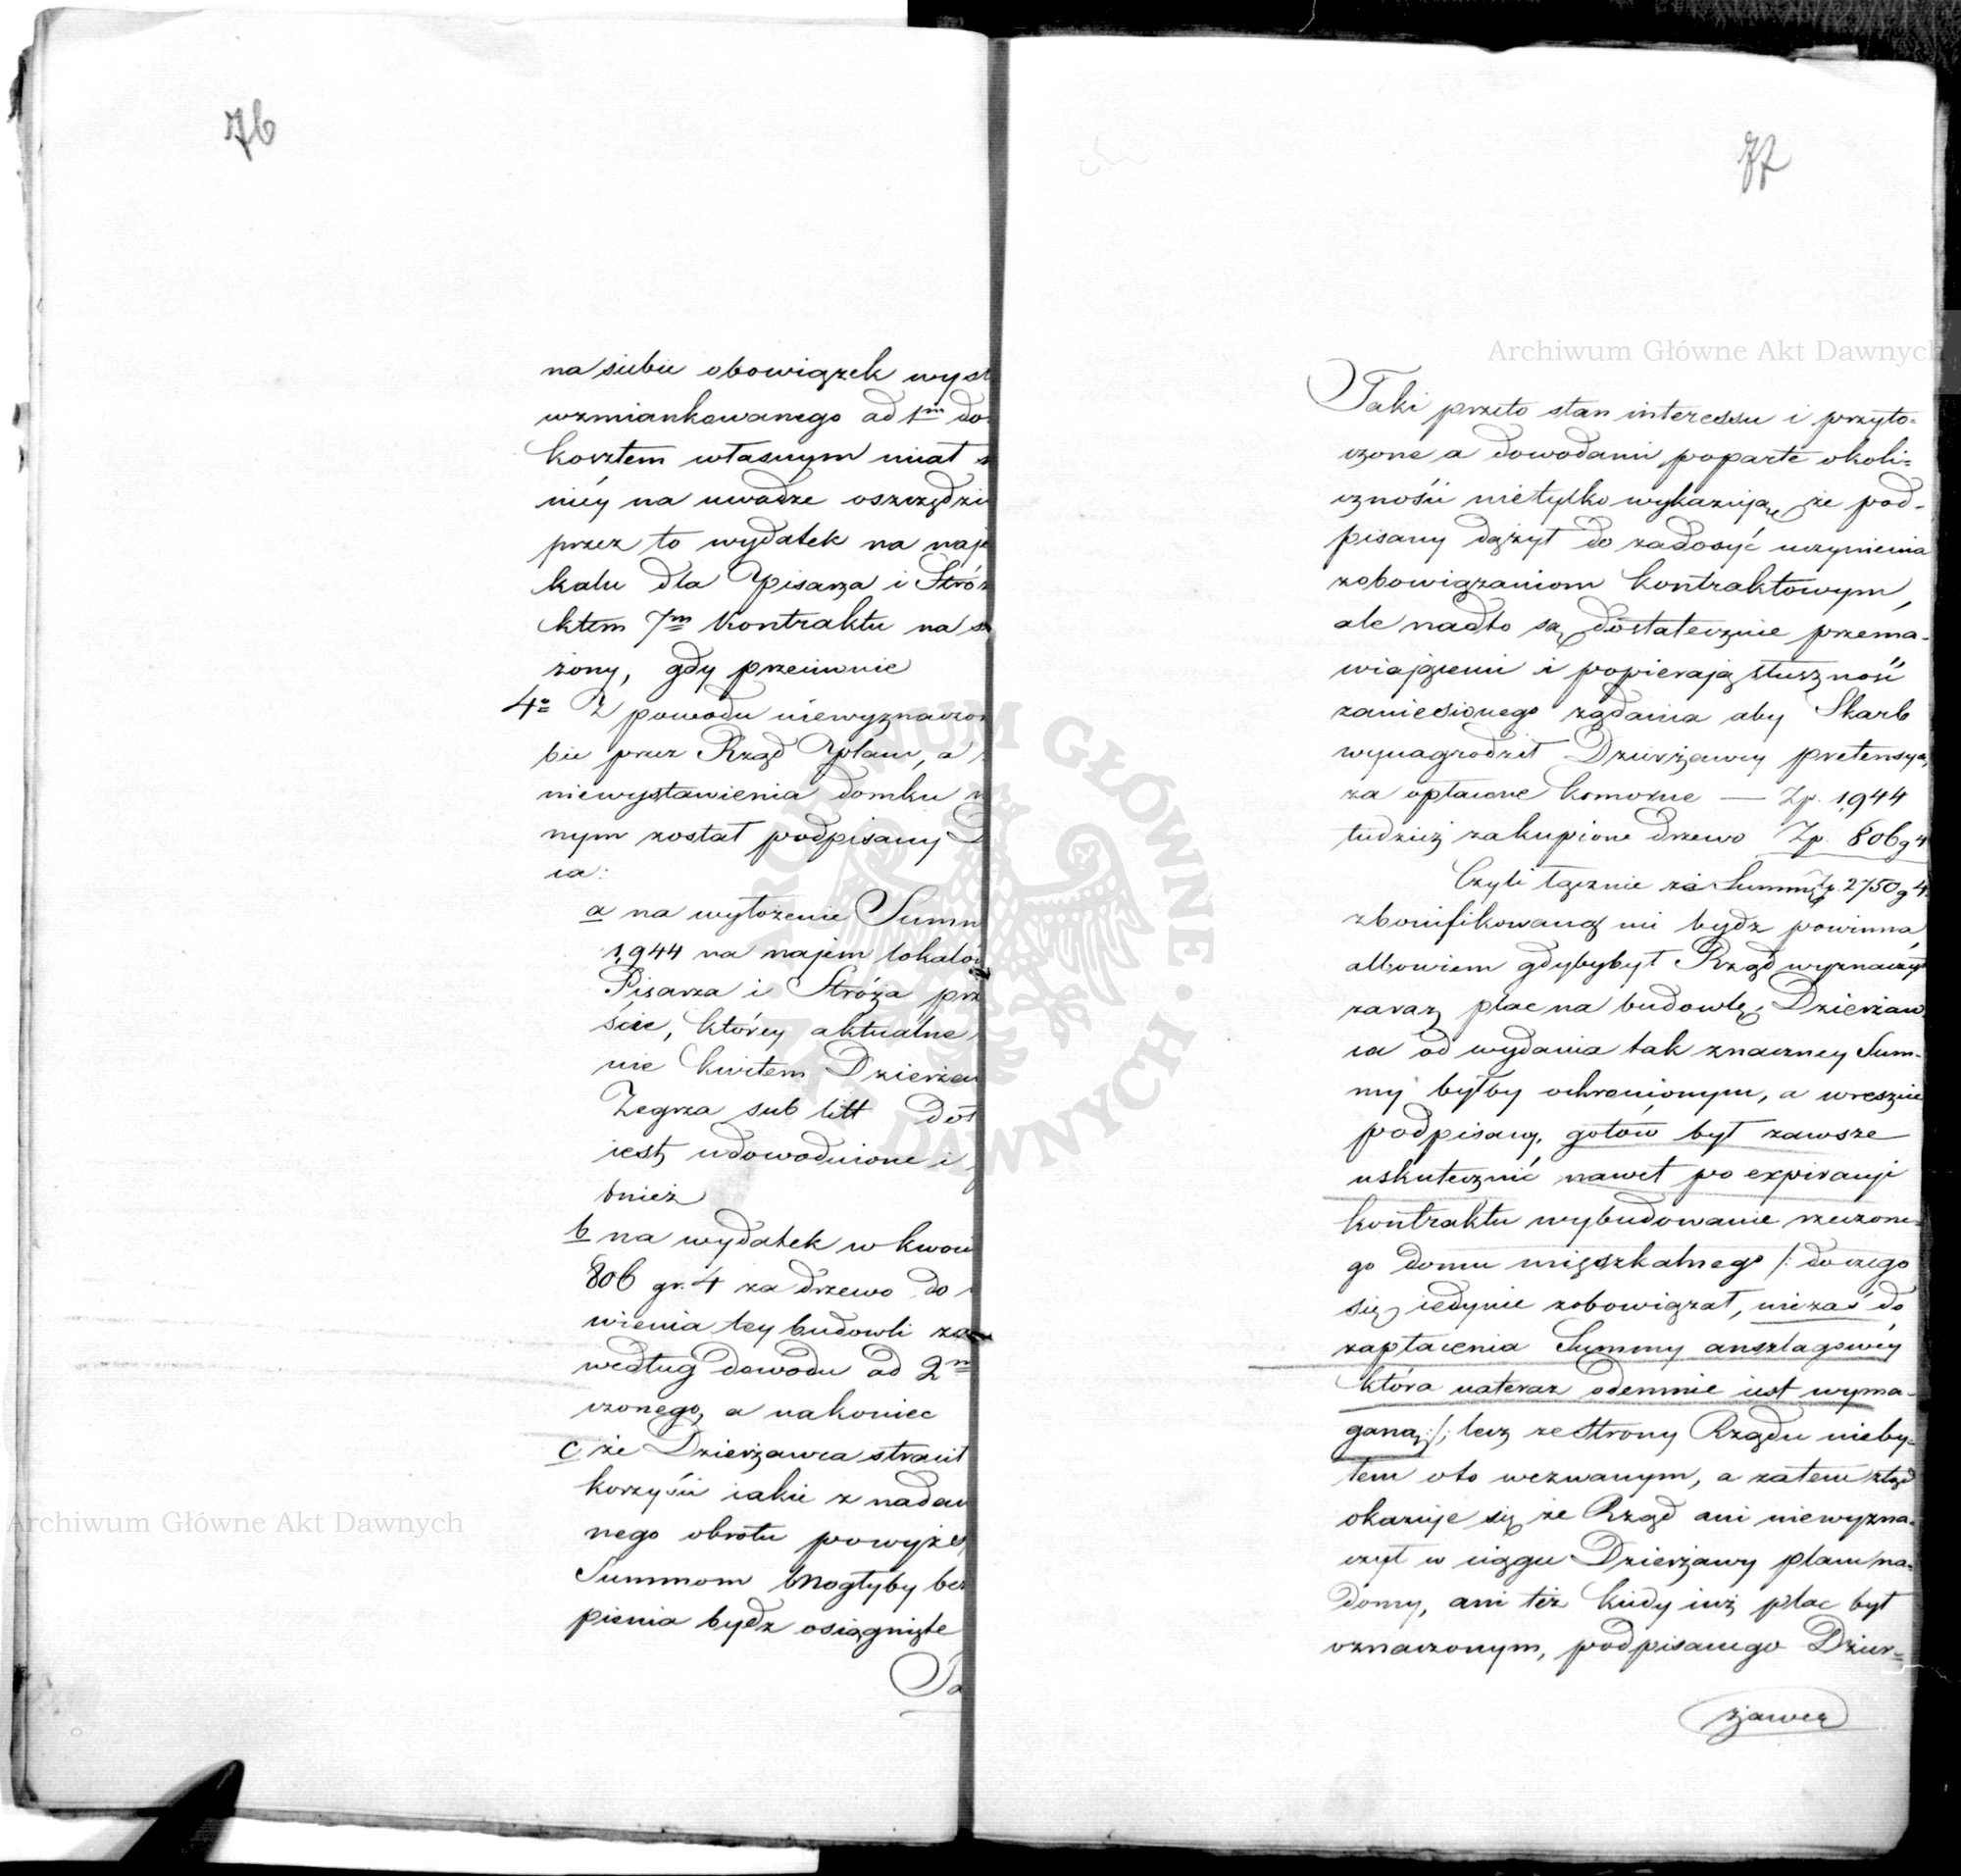 76
na siebie obowiązek wyst
wzmiankowanego ad 1m do
kosztem własnym miał
niéy na uwadze oszczędzi
przez to wydatek na naje
kalu dla Pisarza i Stróż
ktem 7m Kontraktu na s
żony, gdy przeciwnie
4o Z powodu niewyznaczon
bie przez Rząd placu, a
niewystawienia domku
nym został podpisany D
ca:
a na wyłożenie Summ
1,944 na najem lokalów
Pisarza i Stróża prz
ście, którey aktualne
nie kwitem Dzierżaw
Zegrza sub litt
iest udowodnione i
tnież
b na wydatek w kwoci
806 gr. 4 za drzewo do
wienia tey budowli za
według dowodu ad 2m
czonego, a nakoniec
c że Dzierżawca stracił
korzyści iakie z nadan
nego obrotu powyże
Summom mogłyby bez
pienia bydz osiągnięte
Ta
77
Taki przeto stan interessu i przyto-
czone a dowodami poparte okoli-
czności nietylko wykazują, że pod-
pisany dążył do zadosyć uczynienia
zobowiązaniom kontraktowym,
ale nadto są dostatecznie przema-
wiającemi i popierają słuszność
zaniesionego żądania aby Skarb
wynagrodził Dzierżawcy pretensyą
za opłacone komorne — Zp. 1,944
tudzież zakupione drzewo Zp. 806 g 4
Czyli łącznie za Summę Zp. 2750 g 4
zbonifikowaną mi bydz powinna,
albowiem gdybybył Rząd wyznaczył
zaraz plac na budowlę, Dzierżaw-
ca od wydania tak znaczney Sum-
my byłby ochronionym, a wreszcie
podpisany, gotów był zawsze
uskutecznić nawet po expiracyi
kontraktu wybudowanie rzeczone-
go domu mięszkalnego /: do czego
się iedynie zobowiązał, niezaś do
zapłacenia Summy anszlagowéy
która nateraz odemnie iest wyma-
ganą :/; lecz ze strony Rządu nieby-
łem oto wezwanym, a zatem ztąd
okazuje się że Rząd ani niewyzna-
czył w ciągu Dzierżawy placu na
domy, ani też kiedy iuż plac był
oznaczonym, podpisanego Dzier-
żawcę
Archiwum Główne Akt Dawnych
Archiwum Główne Akt Dawnych
ARCHIWUM GŁÓWNE AKT DAWNYCH